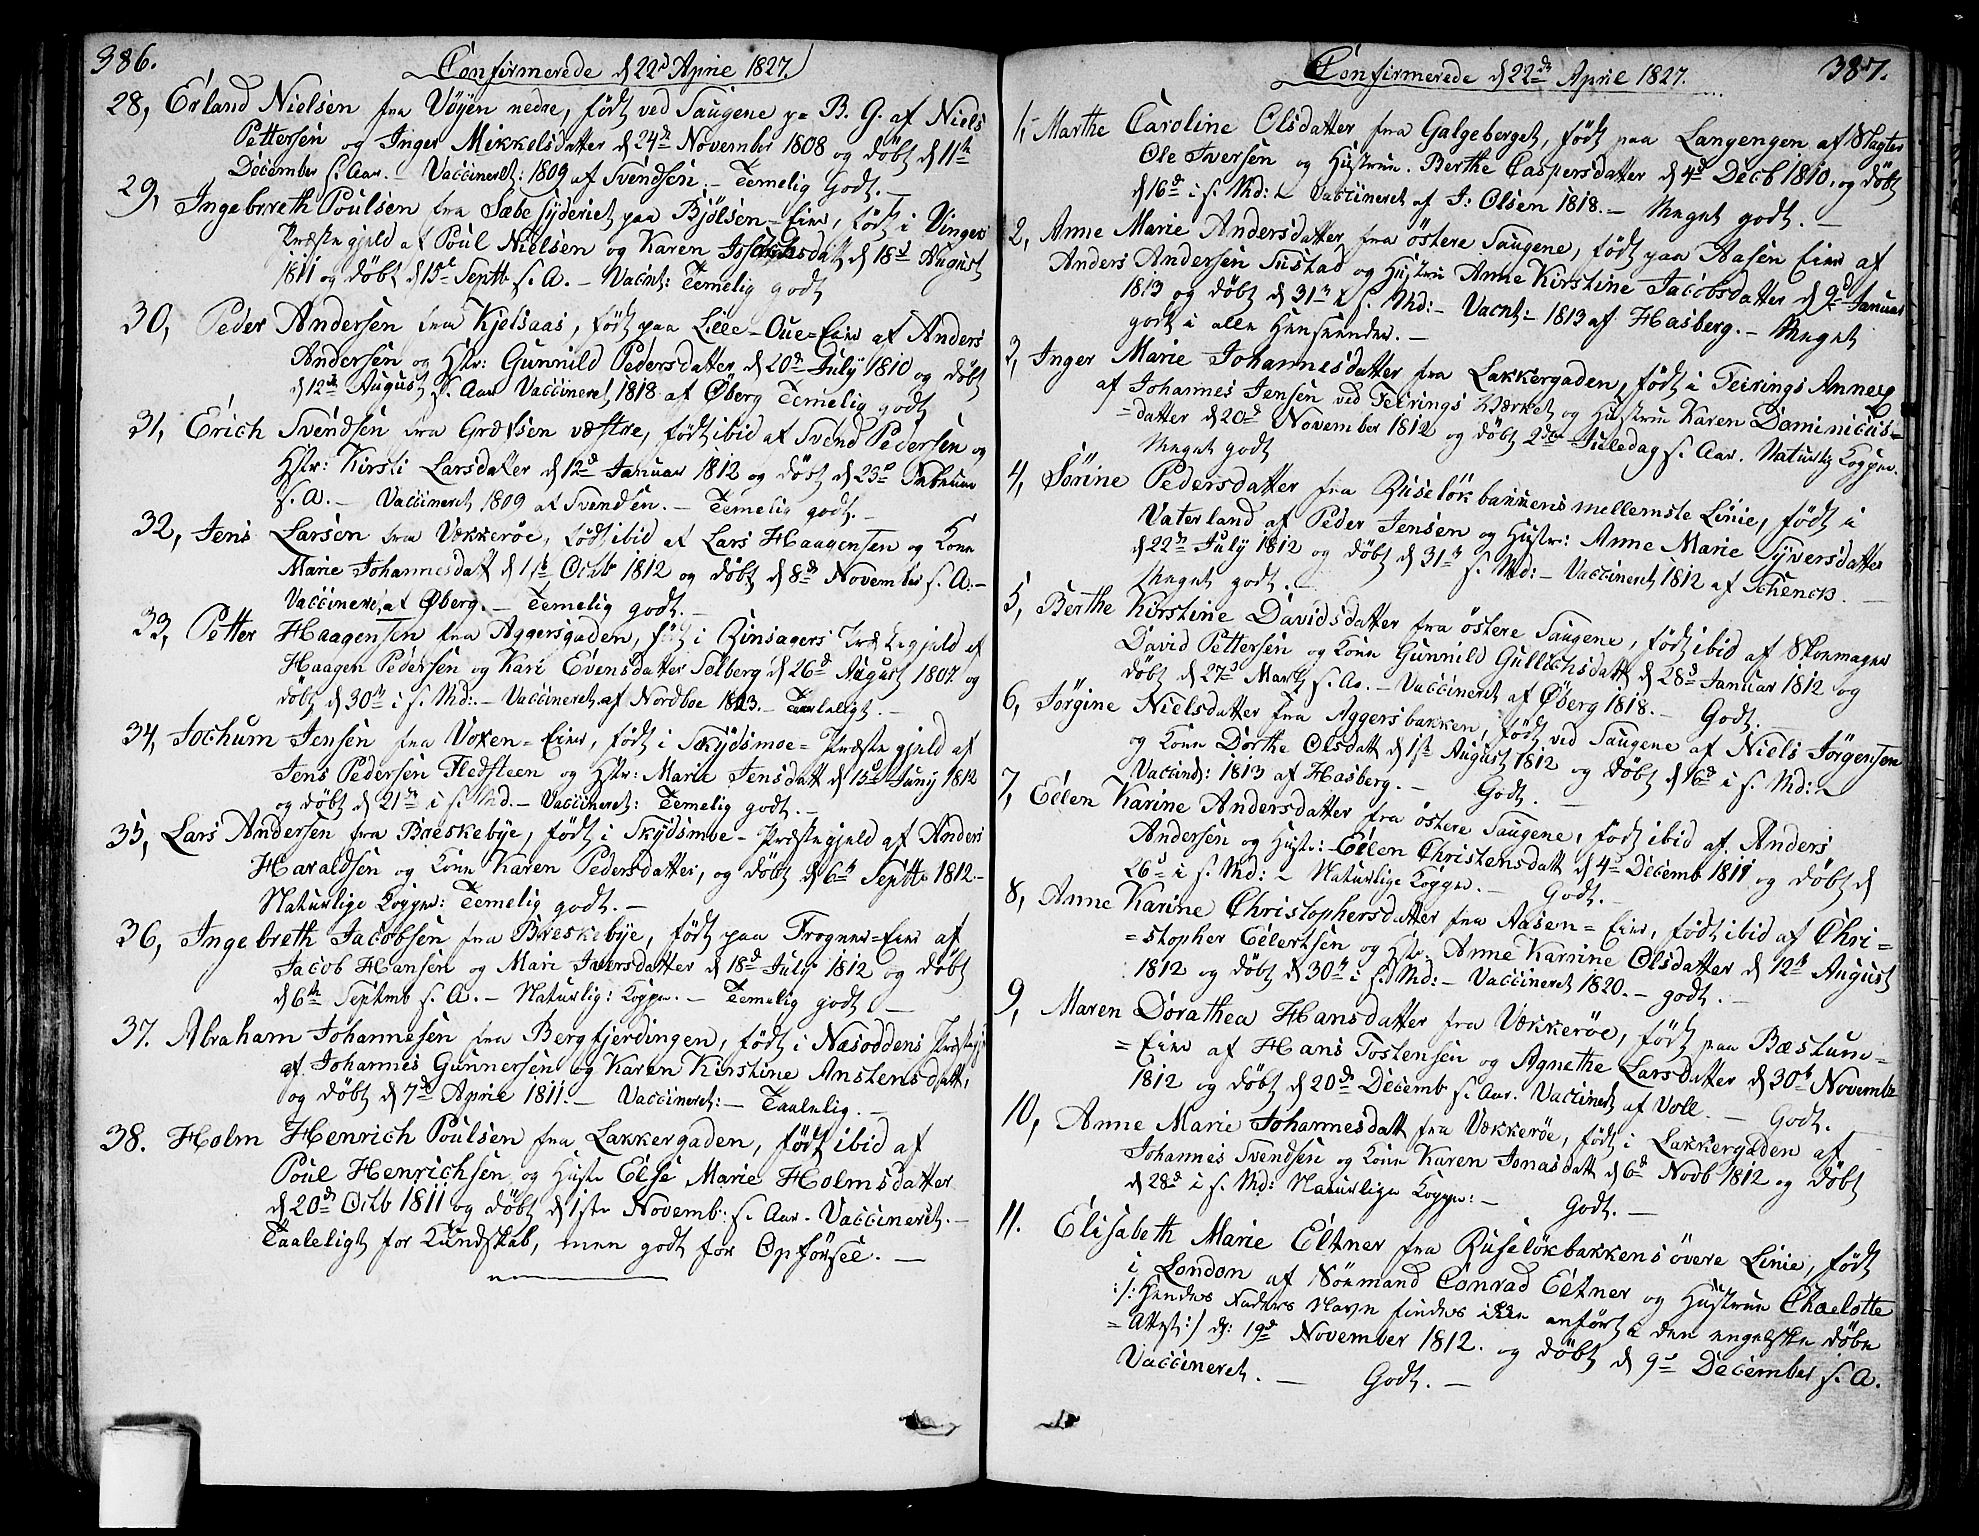 386.
Confirmerede d 22d April 1827.
28, Erland Nielsen fra Vöyen nedre, född ved Saugene pa B. G. af Niels
Pettersen og Inger Mikkelsdatter d 24de November 1808 og döbt d 11te
December s. Aar. - Vaccineret: 1809 af Svendsen. - Temelig Godt. -
29, Ingebreth Poulsen fra Sæbesyderiet paa Bjölsen-Eier, född i Vinger
Præstegjeld af Poul Nielsen og Karen datt d 18d August
1811 og döbt d 15de Septb. s. A. - Vacint: Temelig godt
30, Peder Andersen fra Kjelsaas, född paa Lille-Oue-Eier af Anders
Andersen og Hstr: Gunnild Pedersdatter d 20de July 1810 og döbt
d 12te August s. Aar Vaccineret 1818 af Øberg Temelig godt
31, Erich Svendsen fra Grefsen væstre, född ibid af Svend Pedersen og
Hstr: Kirsti Larsdatter d 12d Januar 1812 og döbt d 23d Febuar
s. A. - Vaccineret 1809 af Svendsen. - Temelig godt. -
32, Jens Larsen fra Vækkeröe, född ibid af Lars Haagensen og Kone
Marie Johannesdatt d 11te Octbr 1812 og döbt d 8de November s. A. -
Vaccineret, af Øberg. - Temelig godt. -
33, Petter Haagensen fra Aggersgaden, född i Rinsagers Præstegjeld af
Haagen Pedersen og Kari Evensdatter Solberg d 26d August 1807 og
döbt d 30te i s. Md: - Vaccineret af Nordboe 1813. - Taaleligt. -
34, Jochum Jensen fra Voxen-Eier, född i Skydsmoe-Præstegjeld af
Jens Pedersen Fledsteen og Hstr: Marie Jensdatt d 15de Juny 1812
og döbt d 21de i s. Md. - Vaccineret: Temelig godt. -
35, Lars Andersen fra Breskebye, född i Skydsmoe-Præstegjeld af Anders
Haraldsen og Kone Karen Pedersdatter, og döbt d 6te Septb. 1812 -
Naturlige Kopper: Temelig godt. -
36, Ingebreth Jacobsen fra Breskebye, född paa Frogner-Eier af
Jacob Hansen og Mari Iversdatter d 18d July 1812 og döbt
d 6te Septmb s. A. - Naturlig: Kopper. - Temelig godt. -
37. Abraham Johannesen fra Bergfjerdingen, född i Næsoddens Præstegj:
af Johannes Gunnersen og Karen Kirstine Anstensdatt,
og döbt d 7de April 1811. - Vaccineret: - Taalelig. -
38. Holm Henrich Poulsen fra Lakkergaden, född ibid af
Poul Henrichsen og Hustr Else Marie Holmsdatter
d 20de Octb 1811 og döbt d 1ste Novemb: s. Aar. Vaccineret. -
Taaleligt for Kundskab, men godt for Opförsel. -
387.
Confirmerede d 22de April 1827.
1, Marthe Caroline Olsdatter fra Galgeberget, född paa Langengen af Slagter
Ole Iversen og Hustrue. Berthe Caspersdatter d 4de Decb 1810, og döbt
d 16de i s. Md: - Vaccineret af J: Olsen 1818. - Meget godt. -
2, Anne Marie Andersdatter fra östere Saugene, född paa Aasen Eier af
Anders Andersen Sustad og Hustru Anne Kirstine Jacobsdatter d 9d Januar
1813 og döbt d 31te i s. Md: - Vacnt: - 1813 af Hasberg. - Meget
godt i alle Henseender. -
3, Inger Marie Johannesdatter fra Lakkergaden, född i Feirings Annex
af Johannes Jensen ved Feirings Værket og Hustrue Karen Daminicus=
=datter d 20de November 1812 og döbt 2den Juledag s. Aar. Naturlig Kopper.
Meget godt
4, Sörine Pedersdatter fra Ruselökbakkens mellemste Linie, född i
Vaterland af Peder Jensen og Hustr: Anne Marie Syversdatter
d 22de July 1812 og döbt d 31te s. Md: - Vaccineret 1812 af Schenck. -
Meget godt. -
5, Berthe Kirstine Davidsdatter fra östere Saugene, född ibid af Skomager
David Pettersen og Kone Gunnild Gullichsdatt d 28de Januar 1812 og
döbt d 27de Marts s. Aa. - Vaccineret af Øberg 1818. - Godt. -
6, Jörgine Nielsdatter fra Aggersbakken, född ved Saugene af Niels Jörgensen
og Kone Dorthe Olsdatt d 1ste August 1812 og döbt d 16de i s. Md: -
Vaccind: 1813 af Hasberg. - Godt. -
7, Ellen Karine Andersdatter fra östere Saugene, född ibid af Anders
Andersen og Hustr: Ellen Christensdatt d 4de Decemb 1811 og döbt d
26de i s. Md: - Naturlige Kopper. - Godt. -
8, Anne Karine Christophersdatter fra Aasen-Eier, född ibid af Chri=
=stopher Eilertsen og Hstr. Anne Karnine Olsdatter d 12te August
1812 og döbt d 30te i s. Md: - Vaccineret 1820. - godt. -
9, Maren Dorathea Hansdatter fra Vækkeröe, född paa Bæstum=
=Eier af Hans Tostensen og Agnethe Larsdatter d 30te Novembr
1812 og döbt d 20de Decemb s. Aar. Vaccineret af Voll. - Godt.
10, Anne Marie Johannesdatt fra Vækkeröe, född i Lakkergaden af
Johannes Svendsen og Kone Karen Jonasdatt d 6d Novb 1812 og döbt
d 28de i s. Md: Naturlige Kopper: - Godt. -
11. Elisabeth Marie Eltner fra Ruselökbakkens övere Linie, född
i London af Nörmand Conrad Eltner og Hustrue Chaelotte
:/: Hendes Faders Navn findes ikke anfört i den engelske döbe
=Attest:/ d: 19de November 1812. og döbt d 9de December s. A.
Vaccineret. - Godt. -